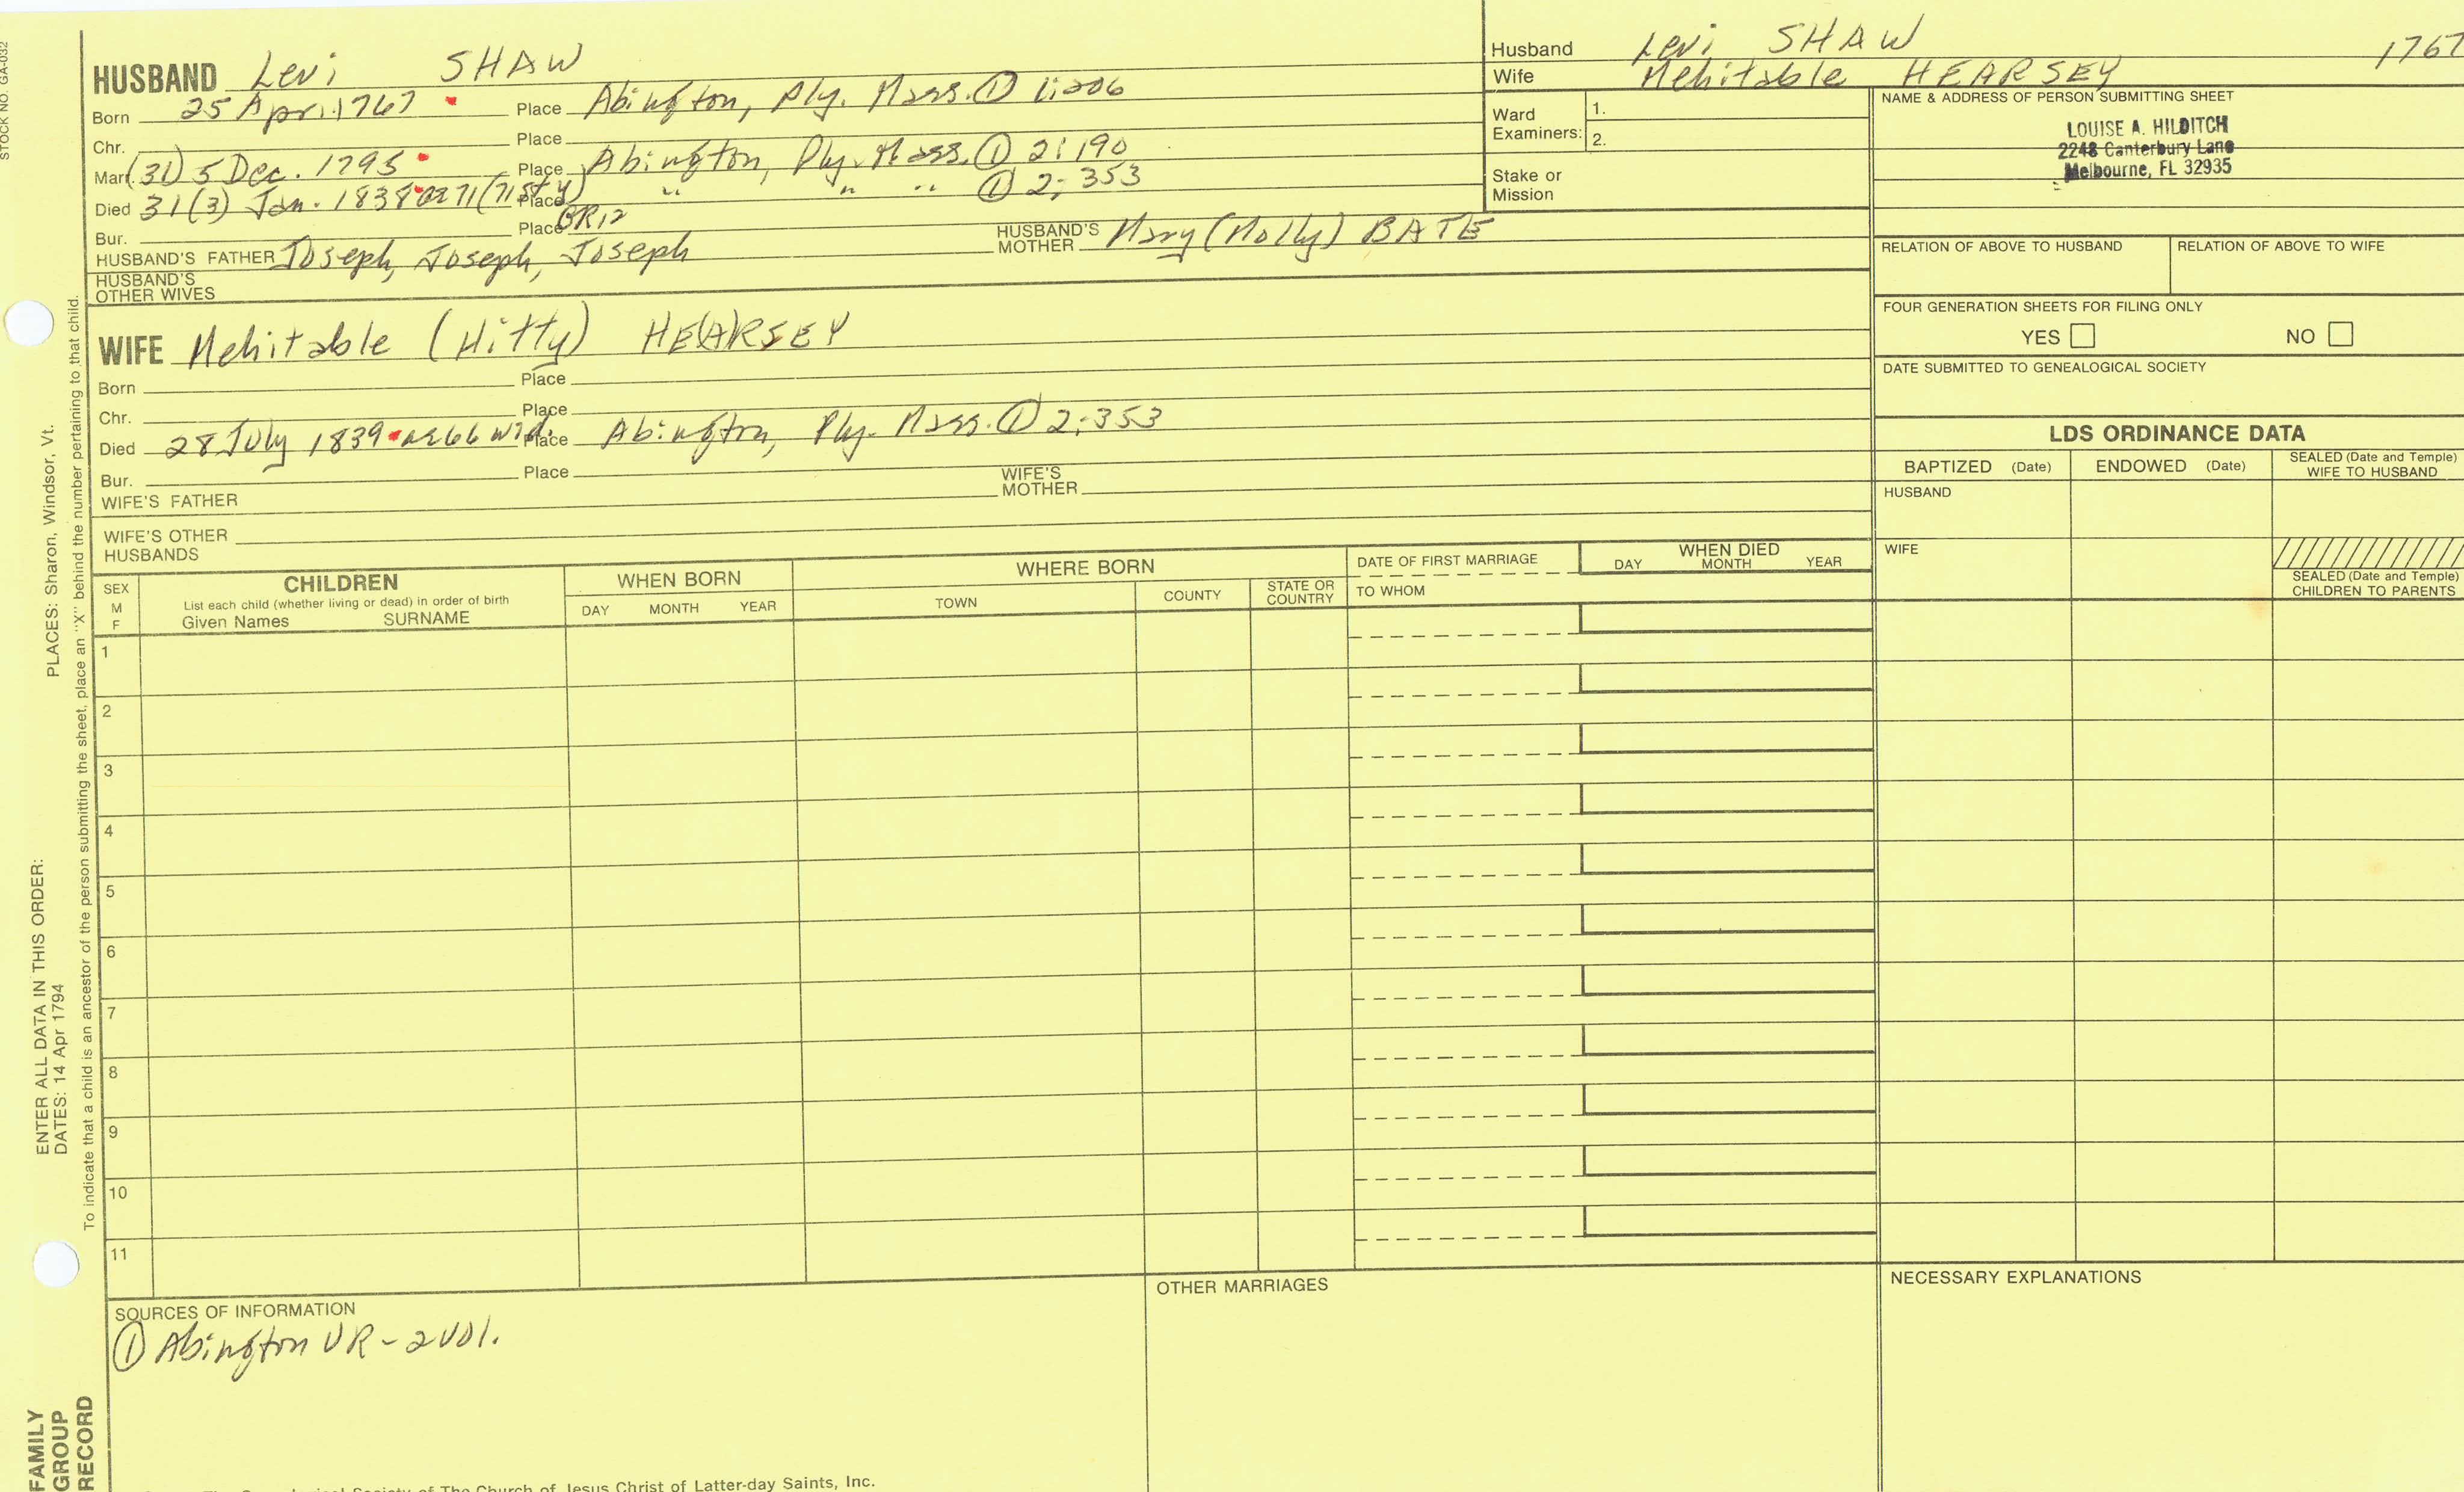 HUSBAND Levi SHAW
Born 25 Apr. 1767 Place Abington, Ply. Mass. ① 1:206
Chr. Place
Marr. (31) 5 Dec. 1795 Place Abington, Ply. Mass. ① 2:190
Died 31(3) Jan. 1838 ae 71 (71st y) Place " " " ① 2:353
Bur. Place GR12
HUSBAND'S FATHER Joseph, Joseph, Joseph HUSBAND'S MOTHER Mary (Molly) BATE
HUSBAND'S OTHER WIVES
WIFE Mehitable (Hitty) HE(A)RSEY
Born Place
Chr. Place
Died 28 July 1839 ae 66 wid. Place Abington, Ply. Mass. ① 2:353
Bur. Place
WIFE'S FATHER WIFE'S MOTHER
WIFE'S OTHER HUSBANDS
Husband Levi SHAW 1767
Wife Mehitable HEARSEY
Ward Examiners: 1.
2.
Stake or Mission
NAME & ADDRESS OF PERSON SUBMITTING SHEET
LOUISE A. HILDITCH
2248 Canterbury Lane
Melbourne, FL 32935
RELATION OF ABOVE TO HUSBAND RELATION OF ABOVE TO WIFE
FOUR GENERATION SHEETS FOR FILING ONLY
YES NO
DATE SUBMITTED TO GENEALOGICAL SOCIETY
LDS ORDINANCE DATA
BAPTIZED (Date) ENDOWED (Date) SEALED (Date and Temple) WIFE TO HUSBAND
HUSBAND
WIFE
SEALED (Date and Temple) CHILDREN TO PARENTS
SEX M F CHILDREN WHEN BORN WHERE BORN DATE OF FIRST MARRIAGE WHEN DIED
List each child (whether living or dead) in order of birth
Given Names SURNAME DAY MONTH YEAR TOWN COUNTY STATE OR COUNTRY TO WHOM DAY MONTH YEAR
1
2
3
4
5
6
7
8
9
10
11
SOURCES OF INFORMATION
① Abington VR - 2 Vol.
OTHER MARRIAGES
NECESSARY EXPLANATIONS
of The Church of Jesus Christ of Latter-day Saints, Inc.
STOCK NO. GA-032
ENTER ALL DATA IN THIS ORDER:
DATES: 14 Apr 1794
PLACES: Sharon, Windsor, Vt.
To indicate that a child is an ancestor of the person submitting the sheet, place an "X" behind the number pertaining to that child.
FAMILY
GROUP
RECORD